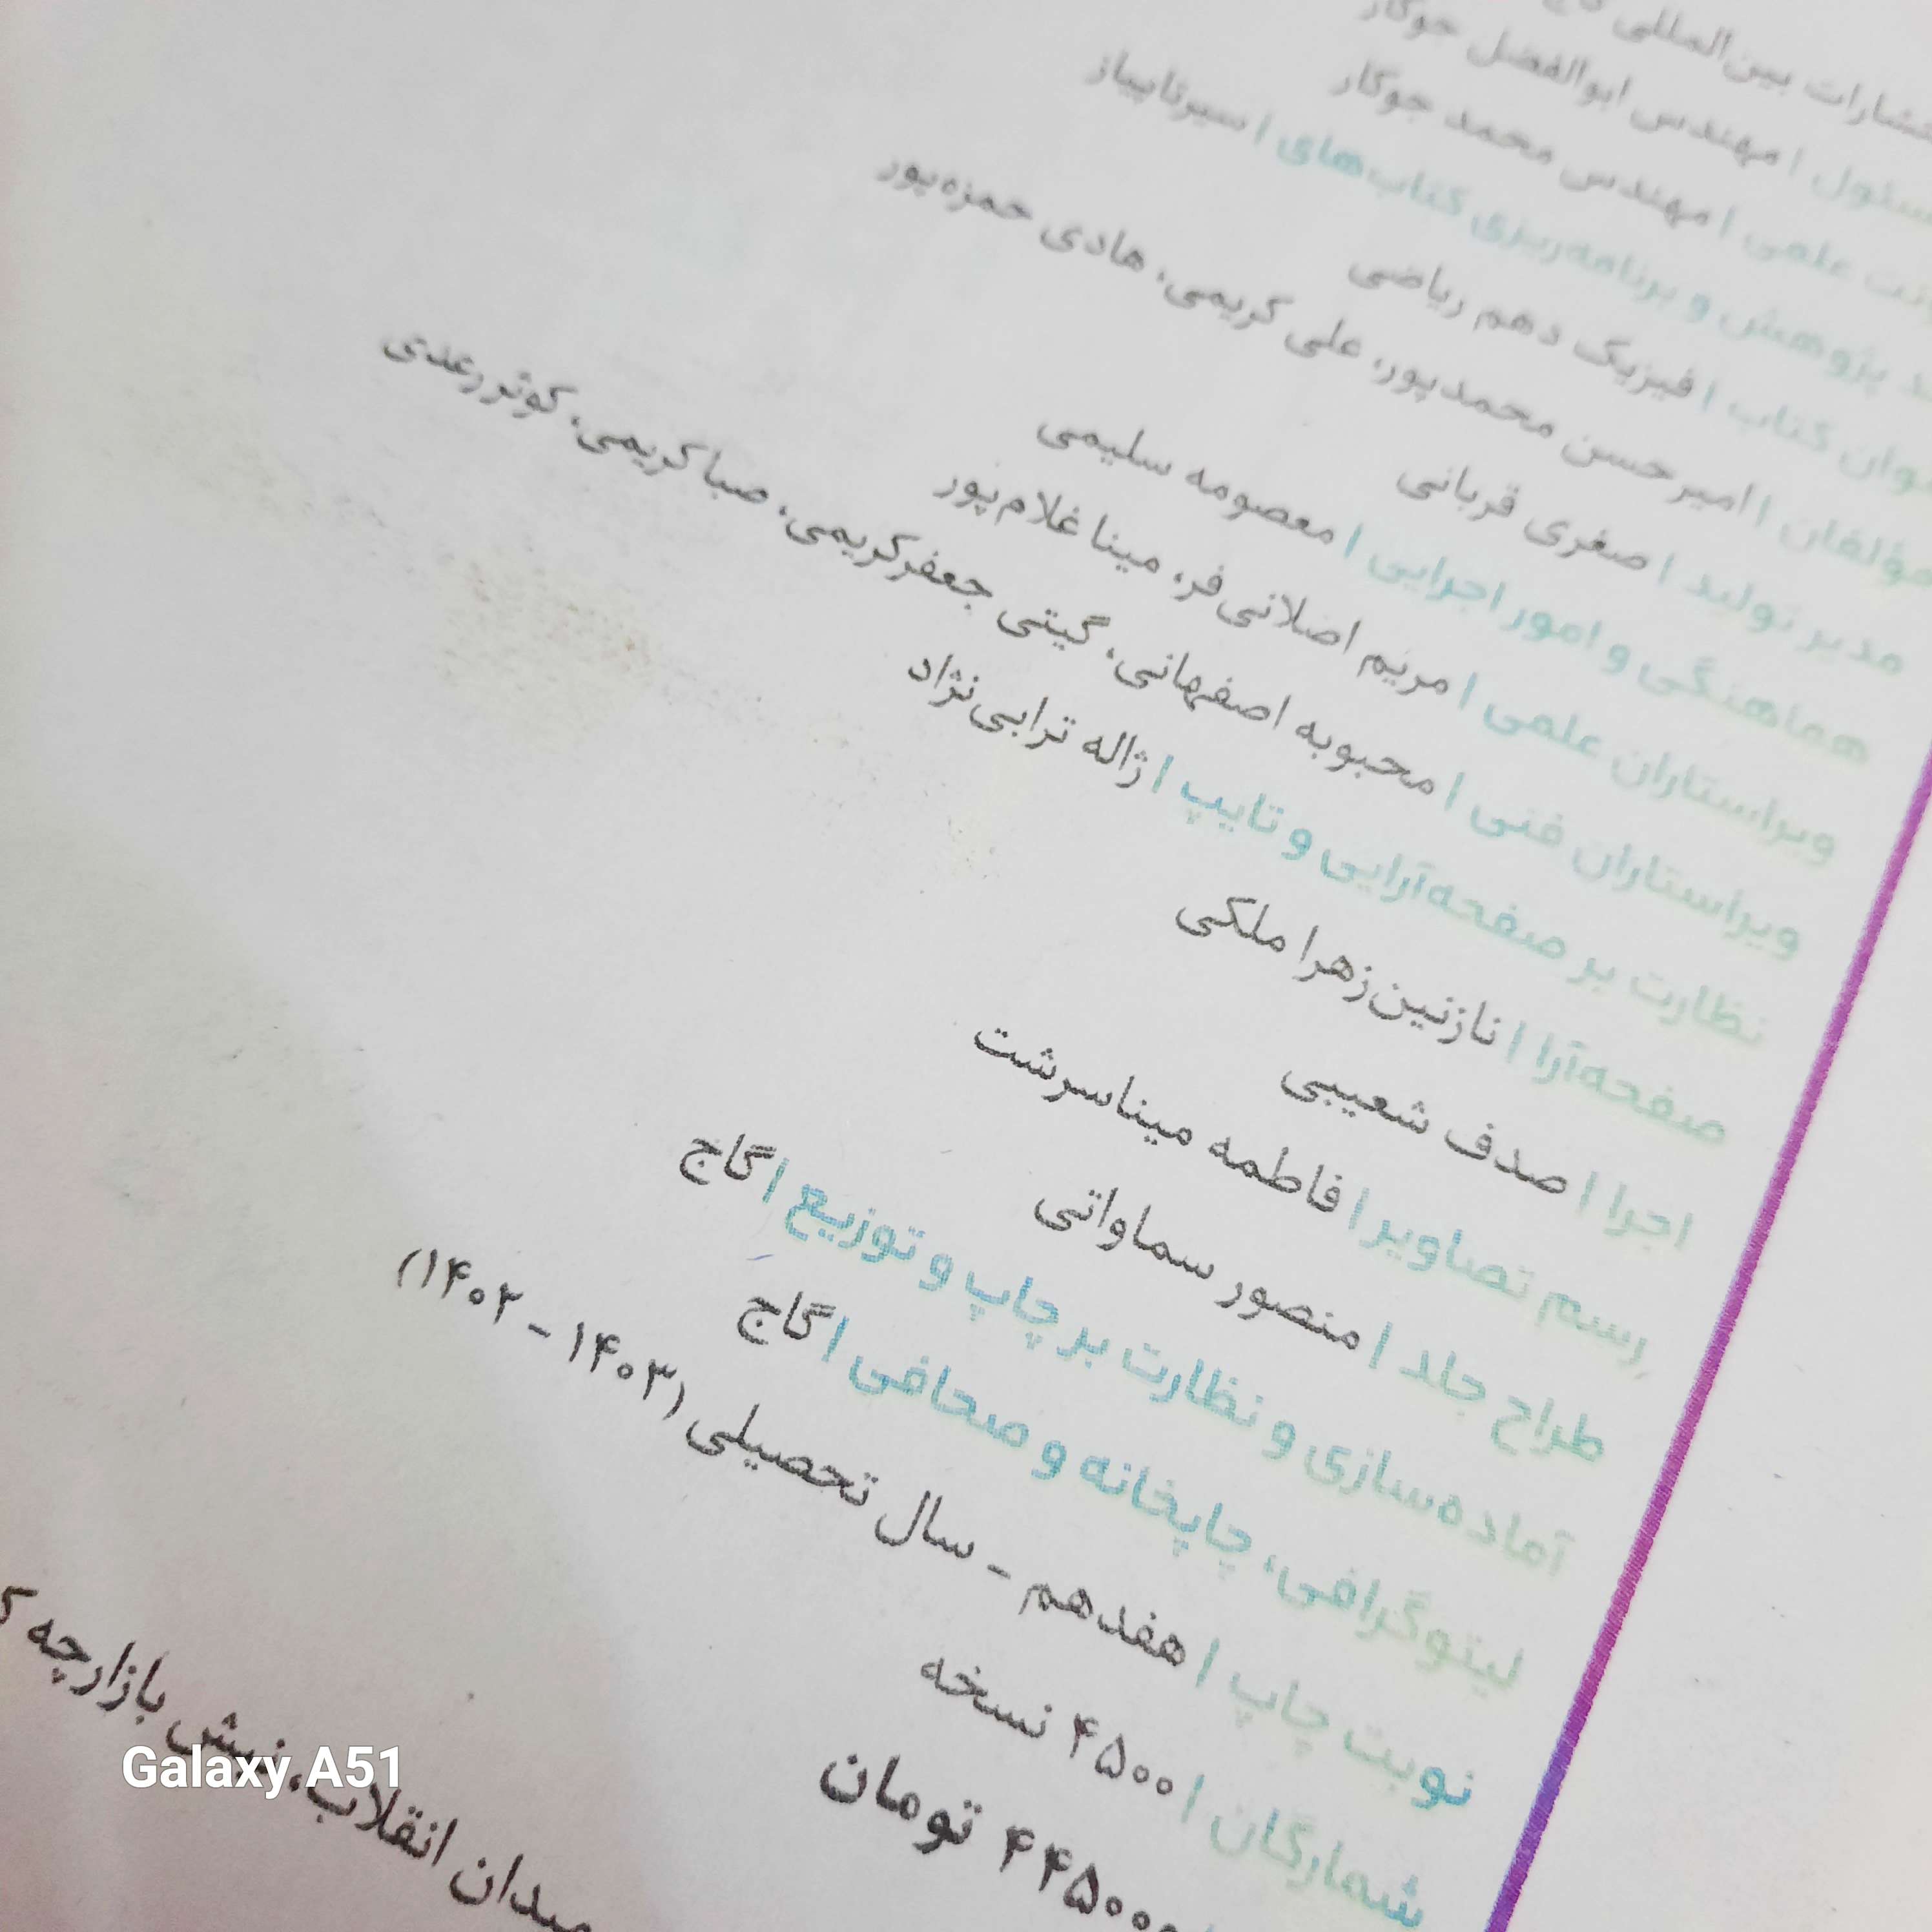 بین‌المللی
مهندس ابوالفضل جوکار
علمی | مهندس محمد جوکار
پژوهش و برنامه‌ریزی کتاب‌های | سیرتاپیاز
کتاب | فیزیک دهم ریاضی
مؤلفان | امیرحسن محمدپور، علی کریمی، هادی حمزه‌پور
مدیر تولید | صغری قربانی
هماهنگی و امور اجرایی | معصومه سلیمی
ویراستاران علمی | مریم اصلانی‌فر، مینا غلام‌پور
ویراستاران فنی | محبوبه اصفهانی، گیتی جعفرکریمی، صبا کریمی، کوثر رعدی
نظارت بر صفحه‌آرایی و تایپ | ژاله ترابی‌نژاد
صفحه‌آرا | نازنین‌زهرا ملکی
اجرا | صدف شعیبی
رسم تصاویر | فاطمه میناسرشت
طراح جلد | منصور سماواتی
آماده‌سازی و نظارت بر چاپ و توزیع | گاج
لیتوگرافی، چاپخانه و صحافی | گاج
نوبت چاپ | هفدهم - سال تحصیلی (۱۴۰۳ - ۱۴۰۲)
شمارگان | ۴۵۰۰ نسخه
۴۴۵۰۰۰ تومان
میدان انقلاب، نبش بازارچه
Galaxy A51